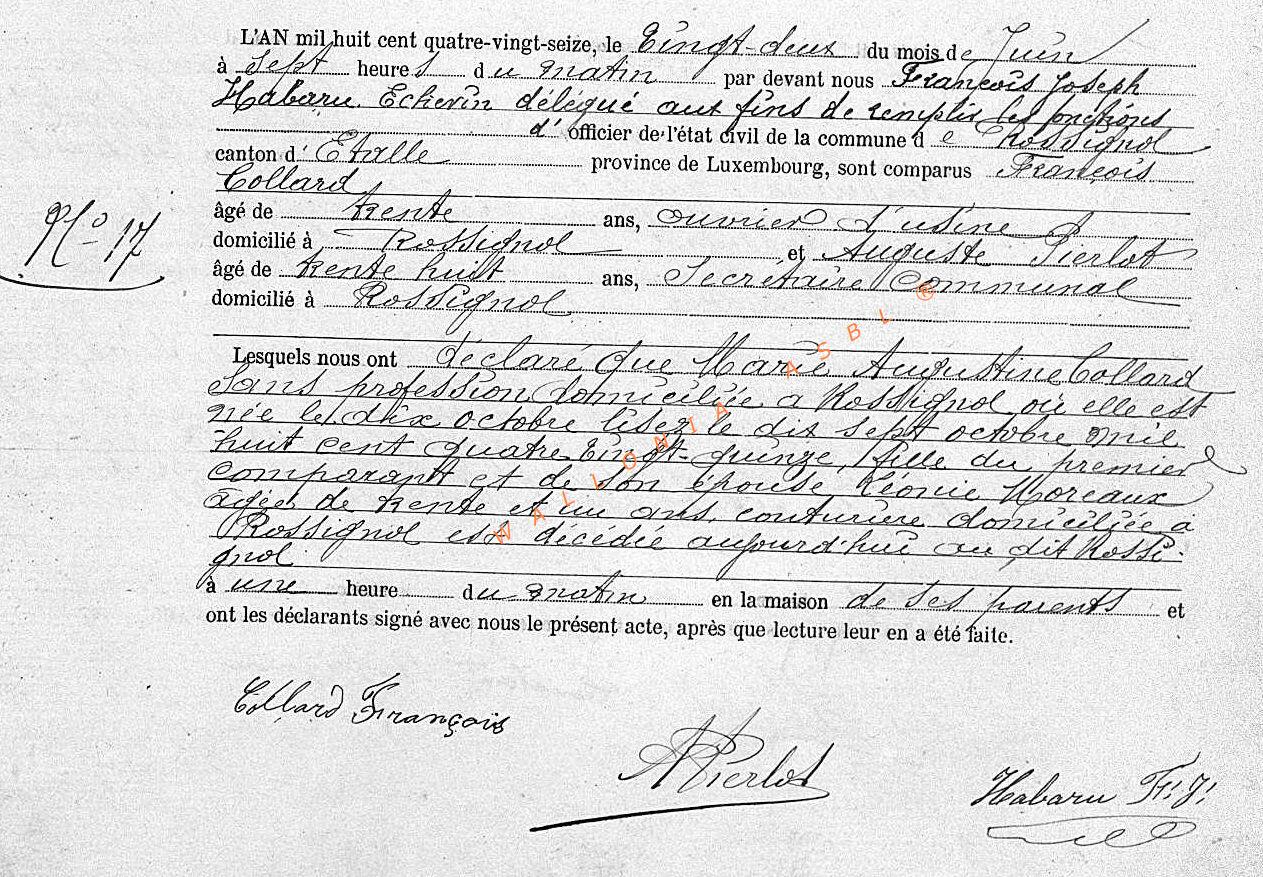 L'AN mil huit cent quatre-vingt-seize, le Vingt-deux du mois de Juin
à Sept heures du matin par devant nous François Joseph
Habaru Echevin délégué aux fins de remplir les fonctions
d' officier de l'état civil de la commune de Rossignol
canton d'Etalle province de Luxembourg, sont comparus François
Collard
âgé de trente ans, ouvrier d'usine
N° 17
domicilié à Rossignol et Auguste Pierlot
âgé de trente huit ans, Secrétaire Communal
domicilié à Rossignol
Lesquels nous ont déclaré que Marie Augustine Collard
Sans profession domiciliée à Rossignol où elle est
née le dix octobre lisez le dix sept octobre mil
huit cent quatre Vingt-quinze, fille du premier
comparant et de son épouse Léonie Moreaux
agée de trente et un ans, couturière domiciliée à
Rossignol est décédée aujourd'hui au dit Rossi-
gnol
à une heure du matin en la maison de ses parents et
ont les déclarants signé avec nous le présent acte, après que lecture leur en a été faite.
WALLONIA ASBL ®
Collard François
APierlot
Habaru F. J.